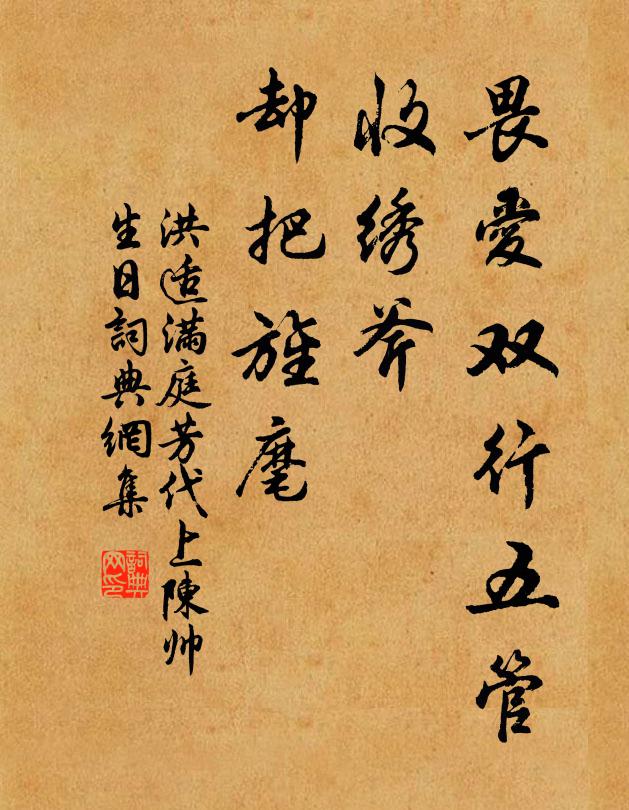 畏愛双行五管
收绣斧
却把旌麾
洪适滿庭芳代上陳帅
生日詞典網集
詞典网印